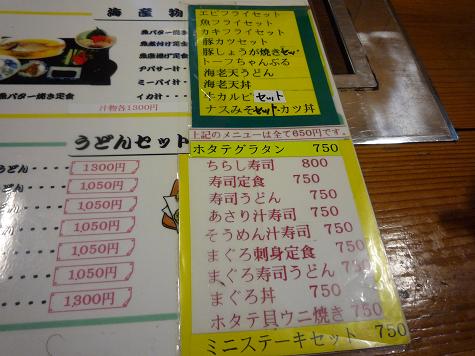 海産物
魚バター焼き定食
汁物各1300円
うどんセット
1300円
1,050円
1,050円
1,050円
1,050円
1,050円
1,300円
エビフライセット
魚フライセット
カキフライセット
豚カツセット
豚しょうが焼きセット
トーフちゃんぷる
海老天うどん
海老天丼
牛カルビセット
ナスみそセット・カツ丼
上記のメニューは全て650円です。
ホタテグラタン 750
ちらし寿司 800
寿司定食 750
寿司うどん 750
あさり汁寿司 750
そうめん汁寿司 750
まぐろ刺身定食 750
まぐろ寿司うどん 750
まぐろ丼 750
ホタテ貝ウニ焼き 750
ミニステーキセット 750